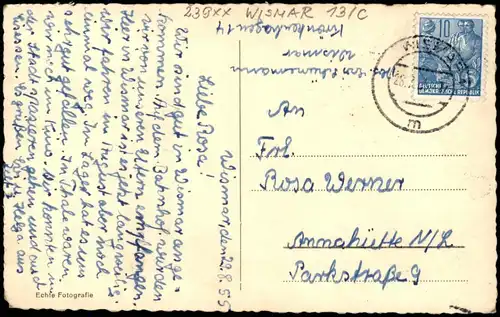 239xx WISMAR 13/C
Krönkenhagen 14
Wismar
bei
DEUTSCHE
DEMOKRATISCHE REPUBLIK
10
WISMAR
m
An
Frl.
Rosa Werner
Annahütte N/L.
Parkstraße 9
Wismar, den 29.8.55
Liebe Rosa!
Wir sind gut in Wismar ange-
kommen. Auf dem Bahnhof wurden
wir von unseren Eltern empfangen.
Hier in Wismar ist es jetzt langweilig.
Wir fahren im Herbst aber noch
einmal weg. Im Lager hat es uns
sehr gut gefallen. In Thale waren
wir nich im Kino. Wir konnten in
der Stadt spazieren gehen und auch
Es grüßen Dich Helga aus
Echte Fotografie